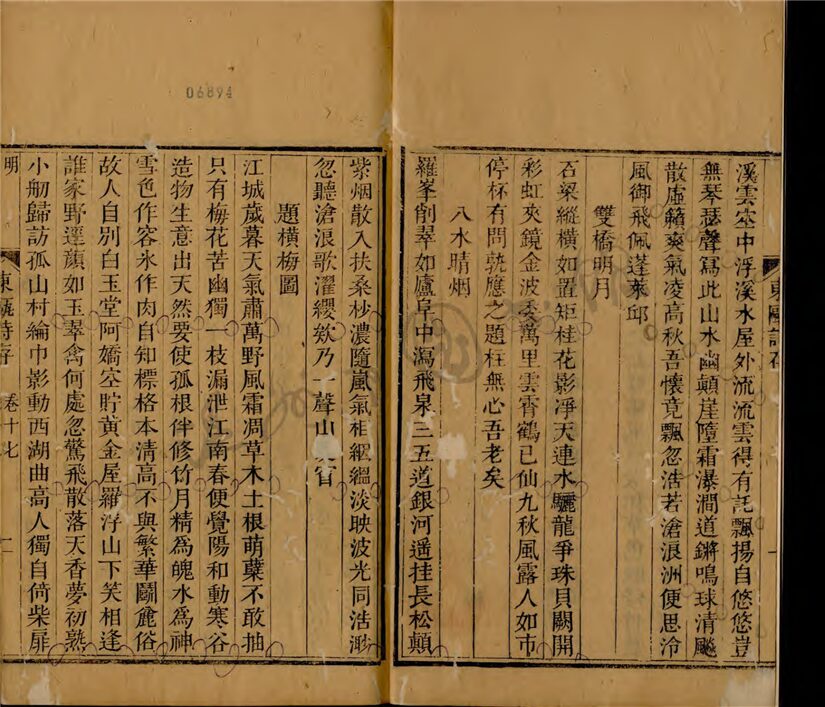 溪雲空中浮溪水屋外流流雲得有託飄揚自悠悠豈
無琴瑟聲寫此山水幽顛崖墮霜瀑澗道鏘鳴球清飈
散虛籟爽氣凌高秋吾懷竟飄忽浩若滄浪洲便思泠
風御飛佩蓬萊邱
雙橋明月
石梁縱橫如置矩桂花影凈天連水驪龍爭珠貝闕開
彩虹夾鏡金波委萬里雲霄鶴已仙九秋風露人如市
停杯有問孰應之題柱無心吾老矣
八水晴烟
羅峯削翠如廬阜中瀉飛泉三五道銀河遥挂長松顛
東甌詩存
紫烟散入扶桑杪濃隨嵐氣相絪縕淡映波光同浩渺
忽聽滄浪歌濯纓欸乃一聲山
題橫梅圖
江城歲暮天氣肅萬野風霜凋草木土根萌蘖不敢抽
只有梅花苦幽獨一枝漏泄江南春便覺陽和動寒谷
造物生意出天然要使孤根伴修竹月精為魄水為神
雪色作容氷作肉自知標格本清高不與繁華鬭麄俗
故人自別白玉堂阿嬌空貯黃金屋羅浮山下笑相逢
誰家野邊顔如玉翠禽何處忽驚飛散落天香夢初熟
小舠歸訪孤山村綸巾影動西湖曲高人獨自倚柴扉
明 東甌詩存 卷十七
06894